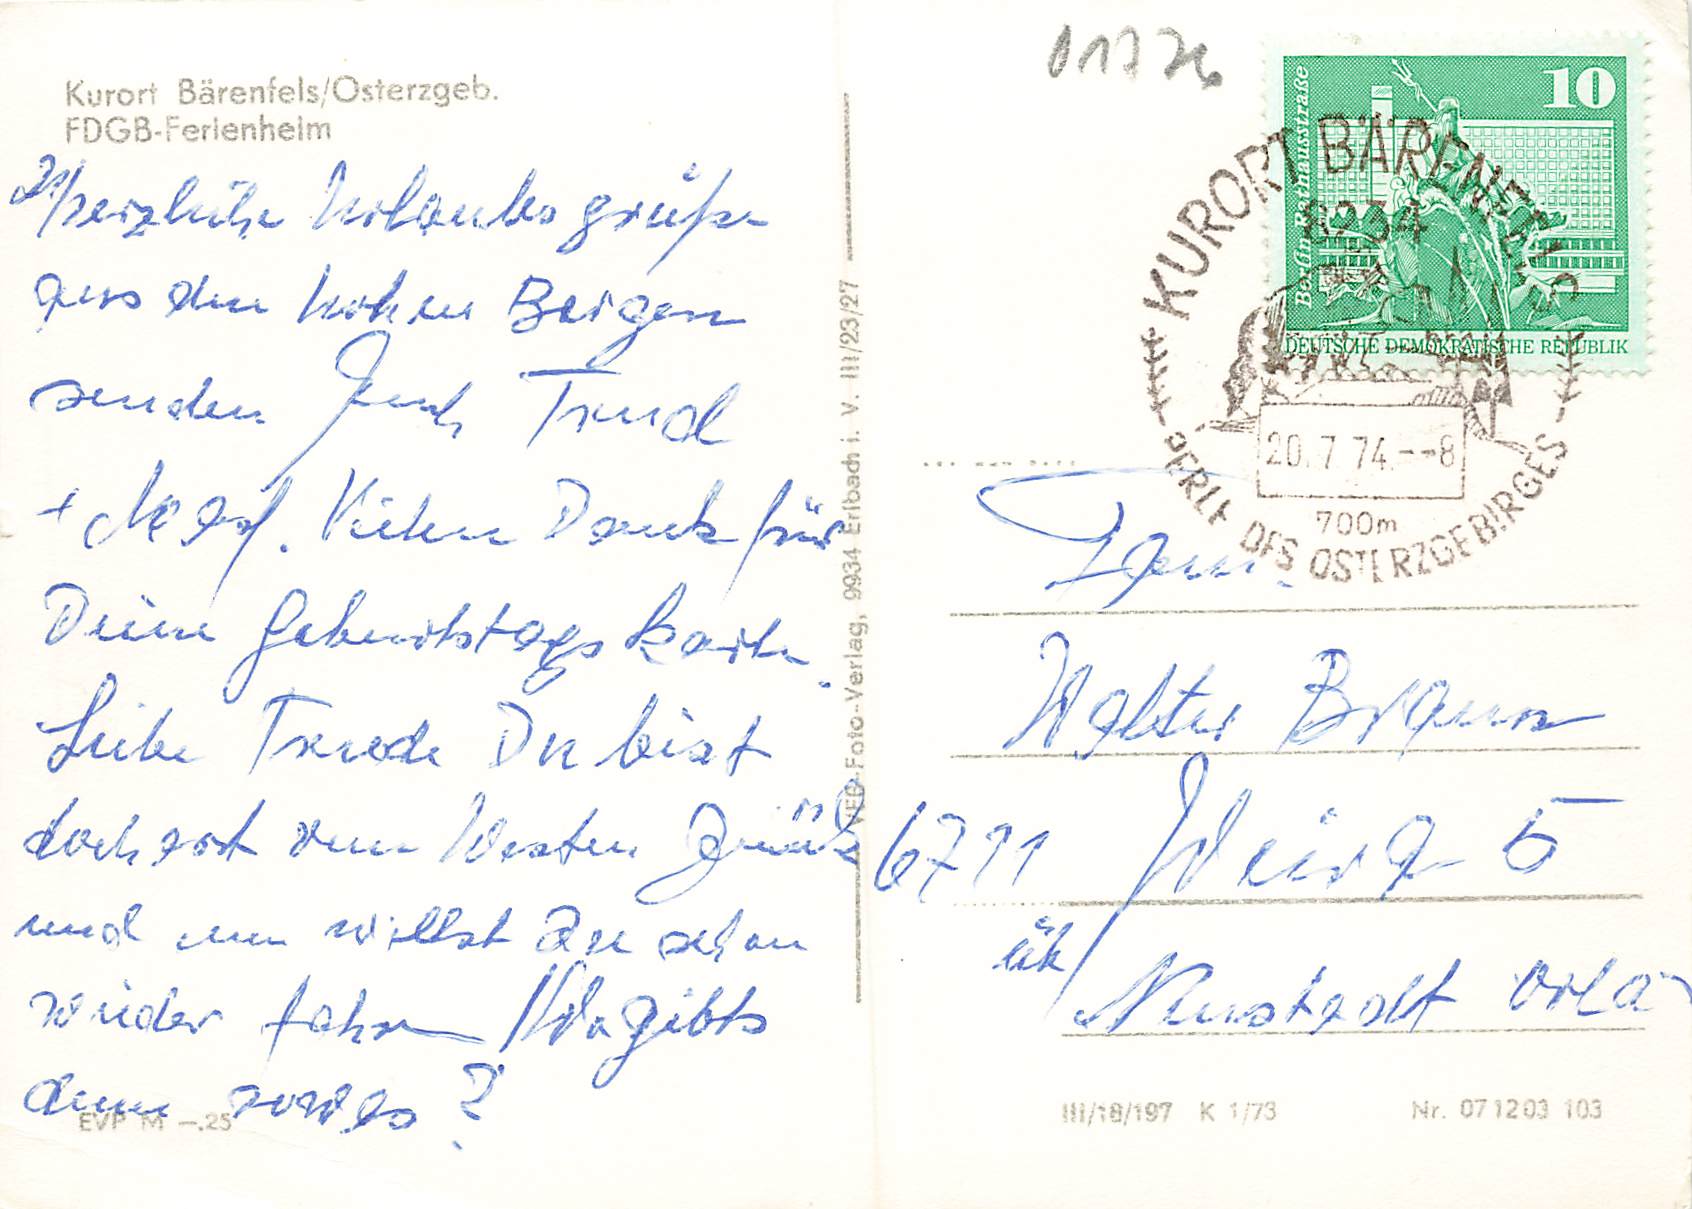 Kurort Bärenfels/Osterzgeb.
FDGB-Ferienheim
Herzliche Urlaubsgrüße
aus den hohen Bergen
senden Euch Trudl
+ Vielen Dank für
Deine Geburtstagskarte.
Liebe Trude Du bist
doch erst vom Westen zurück
und nun willst Du schon
wieder fahren. Wo gibts
denn sowas?
EVP M –.25
VEB Foto-Verlag, 9934 Erlbach i. V. III/23/27
01776
10
Berlin Rathausstraße
DEUTSCHE DEMOKRATISCHE REPUBLIK
KURORT BÄRENFELS
8234
20.7.74.--8
700m
PERLE DES OSTERZGEBIRGES
Fam.
Walter Braun
6711 Weira 5
ük/ Neustadt Orla
III/18/197 K 1/73 Nr. 071203 103